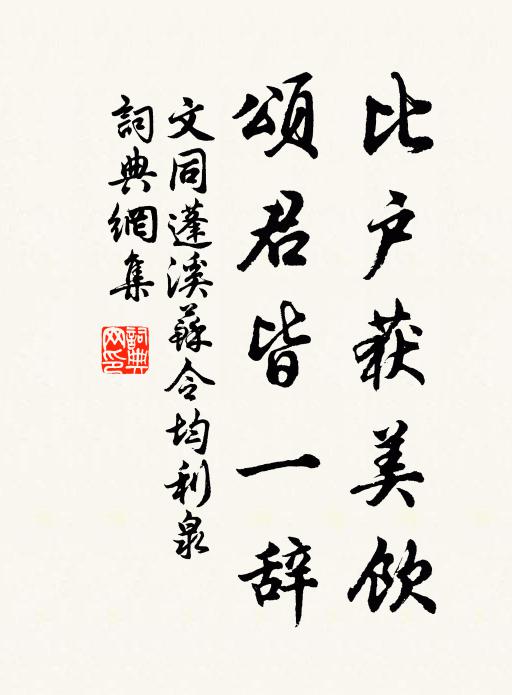 比户获美饮
頌君皆一辞
文同蓬溪蘇令均利泉
詞典網集
詞典
网印